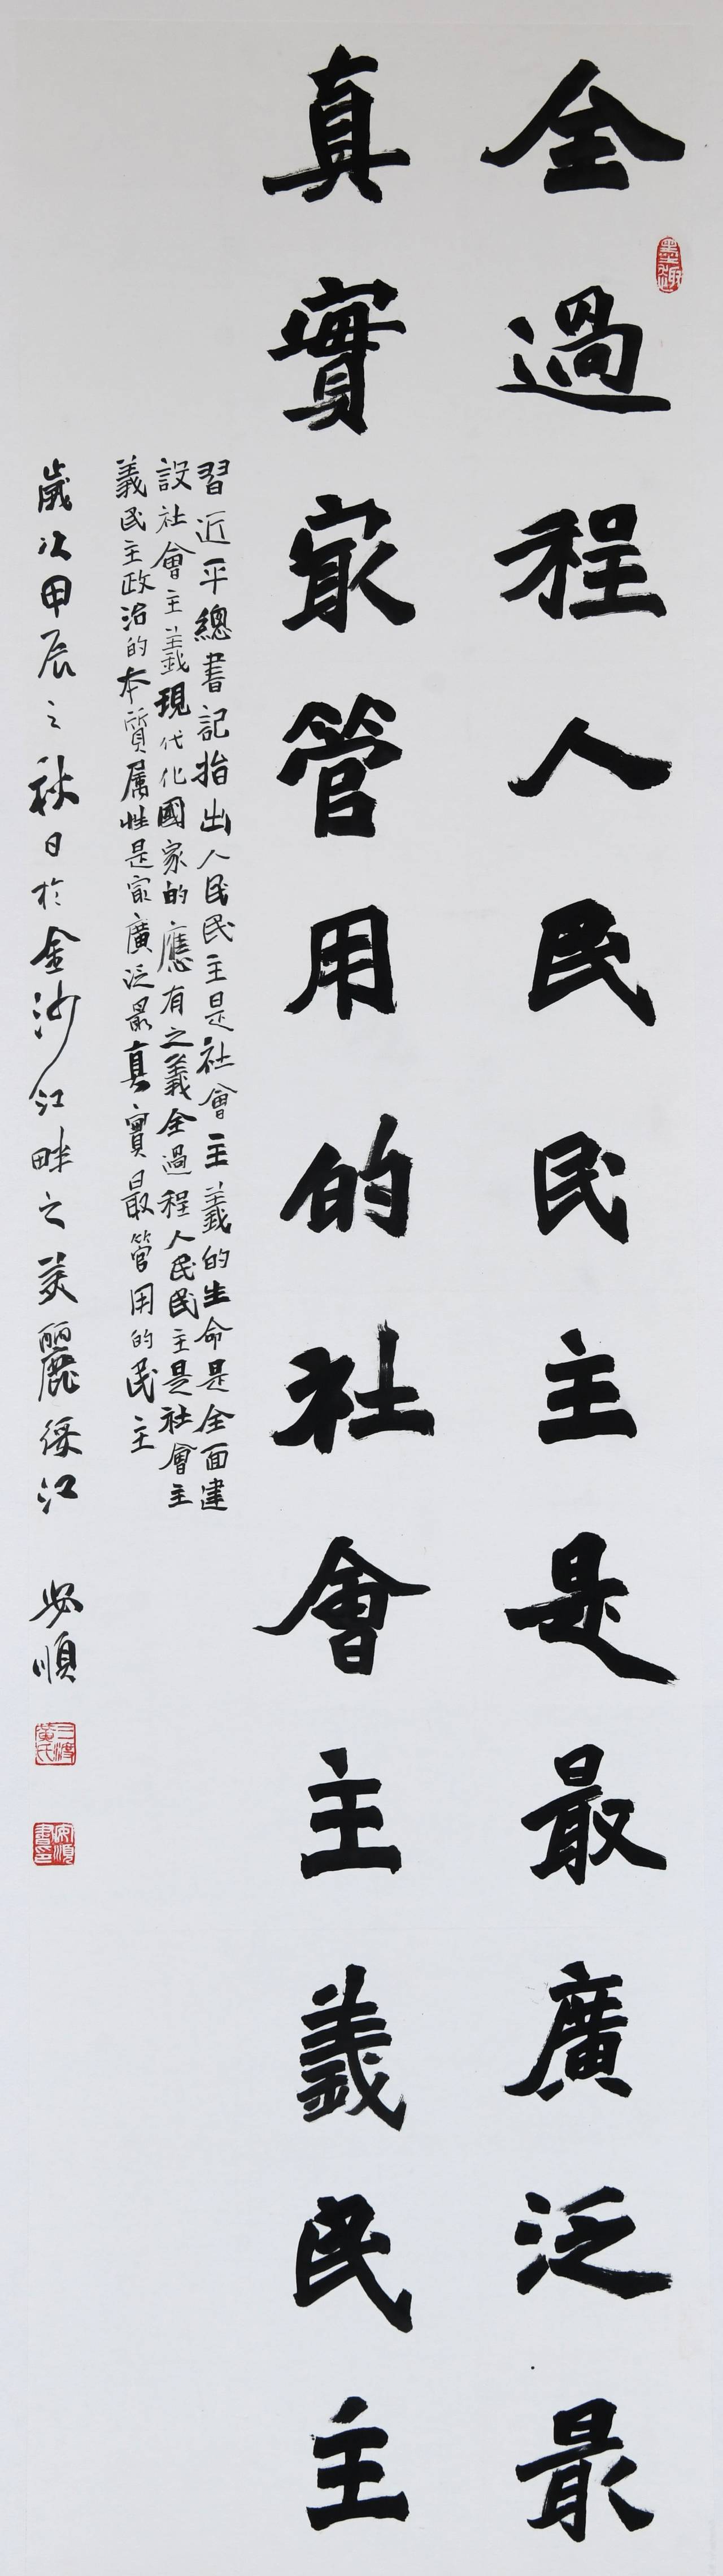 全過程人民民主是最廣泛最
墨趣
真實㝡管用的社會主義民主
習近平總書記指出人民民主是社會主義的生命是全面建
設社會主義現代化國家的應有之義全過程人民民主是社會主
義民主政治的本質屬性是㝡廣泛最真實最管用的民主
歲次甲辰之秋日於金沙江畔之美麗綏江 安順
安順書印